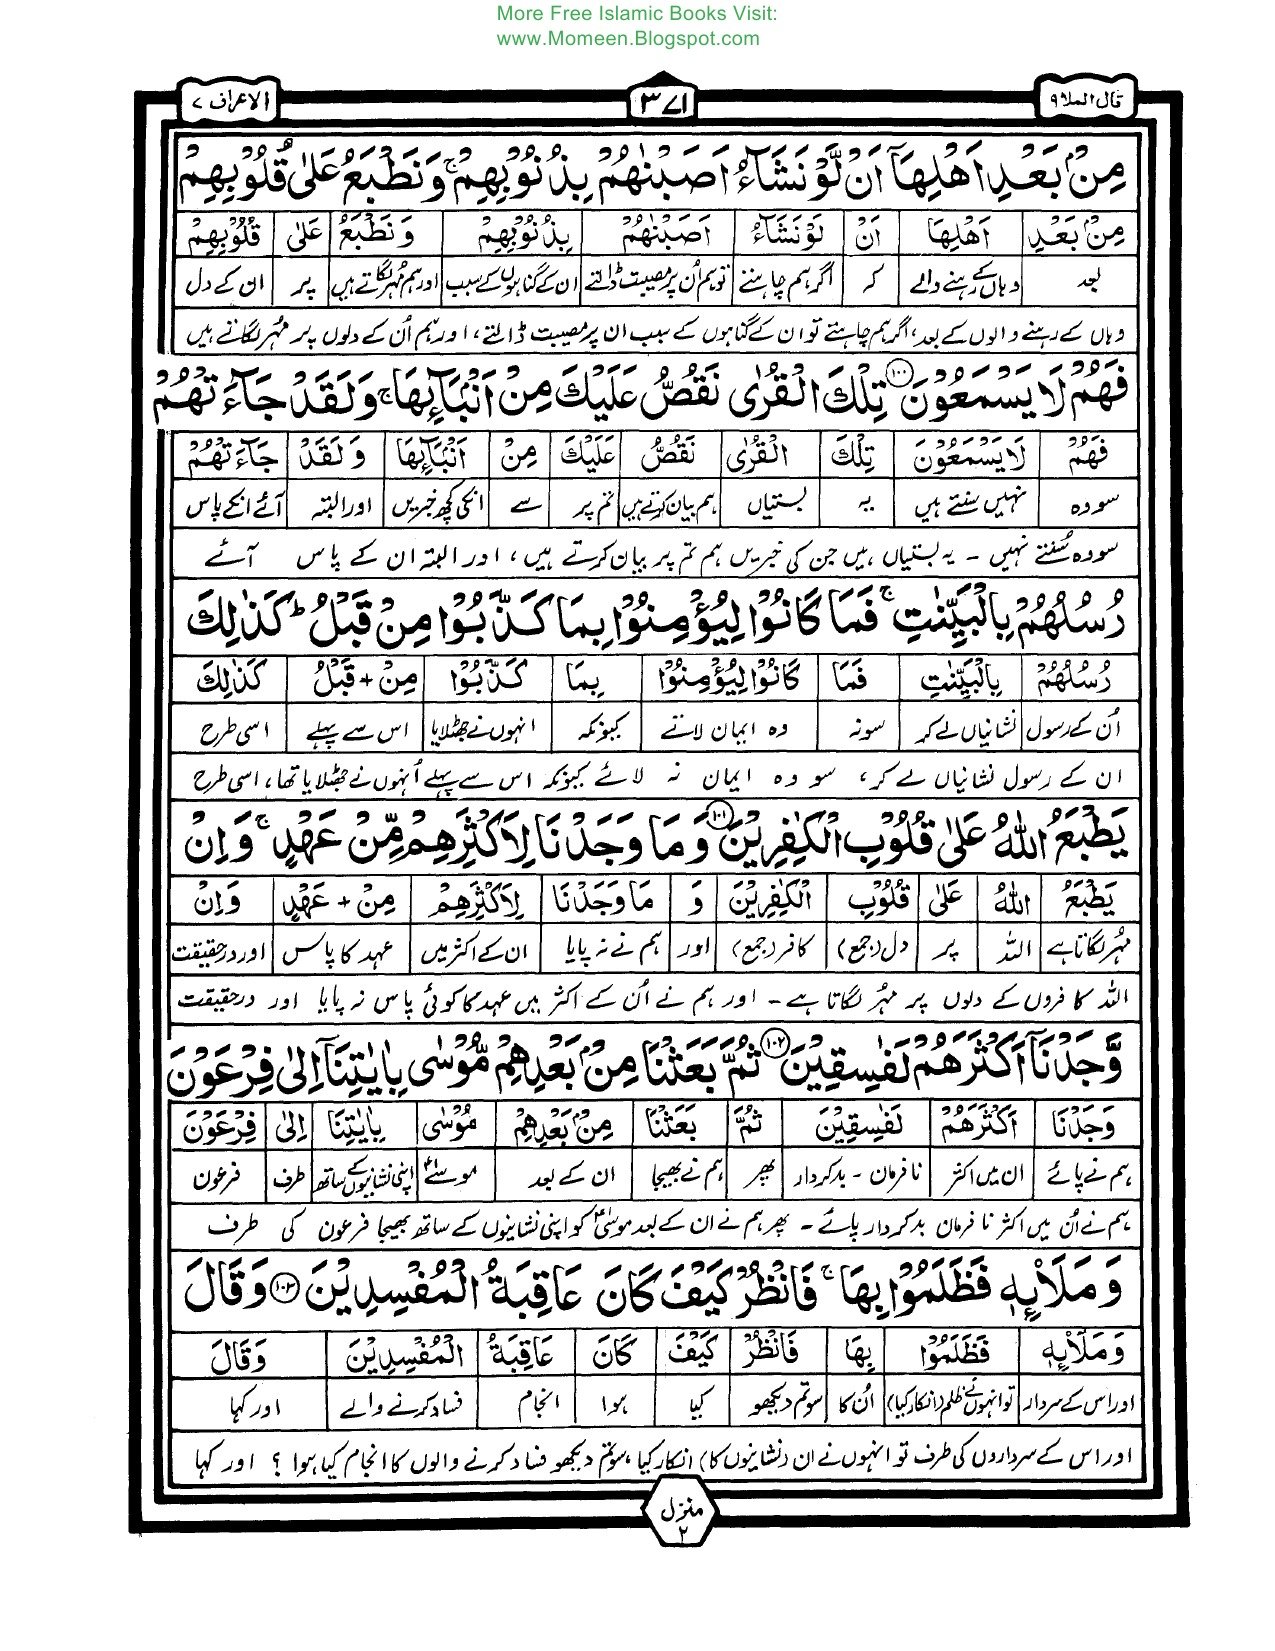 More Free Islamic Books Visit:
www.Momeen.Blogspot.com
قال الملا ۹
۳۷۱
الاعراف ۷
مِنْۢ بَعْدِ اَهْلِهَاۤ اَنْ لَّوْ نَشَآءُ اَصَبْنٰهُمْ بِذُنُوْبِهِمْ ۚ وَنَطْبَعُ عَلٰی قُلُوْبِهِمْ
مِنْۢ بَعْدِ اَهْلِهَا اَنْ لَوْ نَشَآءُ اَصَبْنٰهُمْ بِذُنُوْبِهِمْ وَ نَطْبَعُ عَلٰی قُلُوْبِهِمْ
بعد وہاں کے رہنے والے کہ اگر ہم چاہتے تو ہم اُن پر مصیبت ڈالتے ان کے گناہوں کے سبب اور ہم مُہر لگاتے ہیں پر ان کے دل
وہاں کے رہنے والوں کے بعد، اگر ہم چاہتے تو ان کے گناہوں کے سبب ان پر مصیبت ڈالتے، اور ہم اُن کے دلوں پر مہُر لگاتے ہیں
فَهُمْ لَا یَسْمَعُوْنَ ۱۰۰ تِلْكَ الْقُرٰی نَقُصُّ عَلَیْكَ مِنْ اَنْۢبَآئِهَا ۚ وَلَقَدْ جَآءَتْهُمْ
فَهُمْ لَا یَسْمَعُوْنَ تِلْكَ الْقُرٰی نَقُصُّ عَلَیْكَ مِنْ اَنْۢبَآئِهَا وَ لَقَدْ جَآءَتْهُمْ
سو وہ نہیں سنتے ہیں یہ بستیاں ہم بیان کرتے ہیں تم پر سے انکی کچھ خبریں اور البتہ آئے انکے پاس
سو وہ سُنتے نہیں - یہ بستیاں ہیں جن کی خبریں ہم تم پر بیان کرتے ہیں، اور البتہ ان کے پاس آئے
رُسُلُهُمْ بِالْبَیِّنٰتِ ۚ فَمَا كَانُوْا لِیُؤْمِنُوْا بِمَا كَذَّبُوْا مِنْ قَبْلُ ؕ كَذٰلِكَ
رُسُلُهُمْ بِالْبَیِّنٰتِ فَمَا كَانُوْا لِیُؤْمِنُوْا بِمَا كَذَّبُوْا مِنْ + قَبْلُ كَذٰلِكَ
اُن کے رسول نشانیاں لے کر سو نہ وہ ایمان لاتے کیونکہ انہوں نے جھٹلایا اس سے پہلے اسی طرح
ان کے رسول نشانیاں لے کر، سو وہ ایمان نہ لائے کیونکہ اس سے پہلے اُنہوں نے جھٹلایا تھا، اسی طرح
یَطْبَعُ اللّٰهُ عَلٰی قُلُوْبِ الْكٰفِرِیْنَ ۱۰۱ وَمَا وَجَدْنَا لِاَكْثَرِهِمْ مِّنْ عَهْدٍ ۚ وَاِنْ
یَطْبَعُ اللّٰهُ عَلٰی قُلُوْبِ الْكٰفِرِیْنَ وَ مَا وَجَدْنَا لِاَكْثَرِهِمْ مِنْ + عَهْدٍ وَاِنْ
مُہر لگاتا ہے اللہ پر دل (جمع) کافر (جمع) اور ہم نے نہ پایا ان کے اکثر میں عہد کا پاس اور درحقیقت
اللہ کافروں کے دلوں پر مہُر لگاتا ہے - اور ہم نے اُن کے اکثر میں عہد کا کوئی پاس نہ پایا اور درحقیقت
وَّجَدْنَاۤ اَكْثَرَهُمْ لَفٰسِقِیْنَ ۱۰۲ ثُمَّ بَعَثْنَا مِنْۢ بَعْدِهِمْ مُّوْسٰی بِاٰیٰتِنَاۤ اِلٰی فِرْعَوْنَ
وَجَدْنَا اَكْثَرَهُمْ لَفٰسِقِیْنَ ثُمَّ بَعَثْنَا مِنْۢ بَعْدِهِمْ مُوْسٰی بِاٰیٰتِنَا اِلٰی فِرْعَوْنَ
ہم نے پائے ان میں اکثر نافرمان - بدکردار پھر ہم نے بھیجا ان کے بعد موسیٰؑ اپنی نشانیوں کے ساتھ طرف فرعون
ہم نے اُن میں اکثر نافرمان بدکردار پائے - پھر ہم نے ان کے بعد موسیٰؑ کو اپنی نشانیوں کے ساتھ بھیجا فرعون کی طرف
وَمَلَا۠ئِهٖ فَظَلَمُوْا بِهَا ۚ فَانْظُرْ كَیْفَ كَانَ عَاقِبَةُ الْمُفْسِدِیْنَ ۱۰۳ وَقَالَ
وَمَلَا۠ئِهٖ فَظَلَمُوْا بِهَا فَانْظُرْ كَیْفَ كَانَ عَاقِبَةُ الْمُفْسِدِیْنَ وَقَالَ
اور اس کے سردار تو انہوں نے ظلم (انکار کیا) اُن کا سو تم دیکھو کیا ہوا انجام فساد کرنے والے اور کہا
اور اس کے سرداروں کی طرف تو انہوں نے ان (نشانیوں کا) انکار کیا، سو تم دیکھو فساد کرنے والوں کا انجام کیا ہوا ؟ اور کہا
منزل ۲